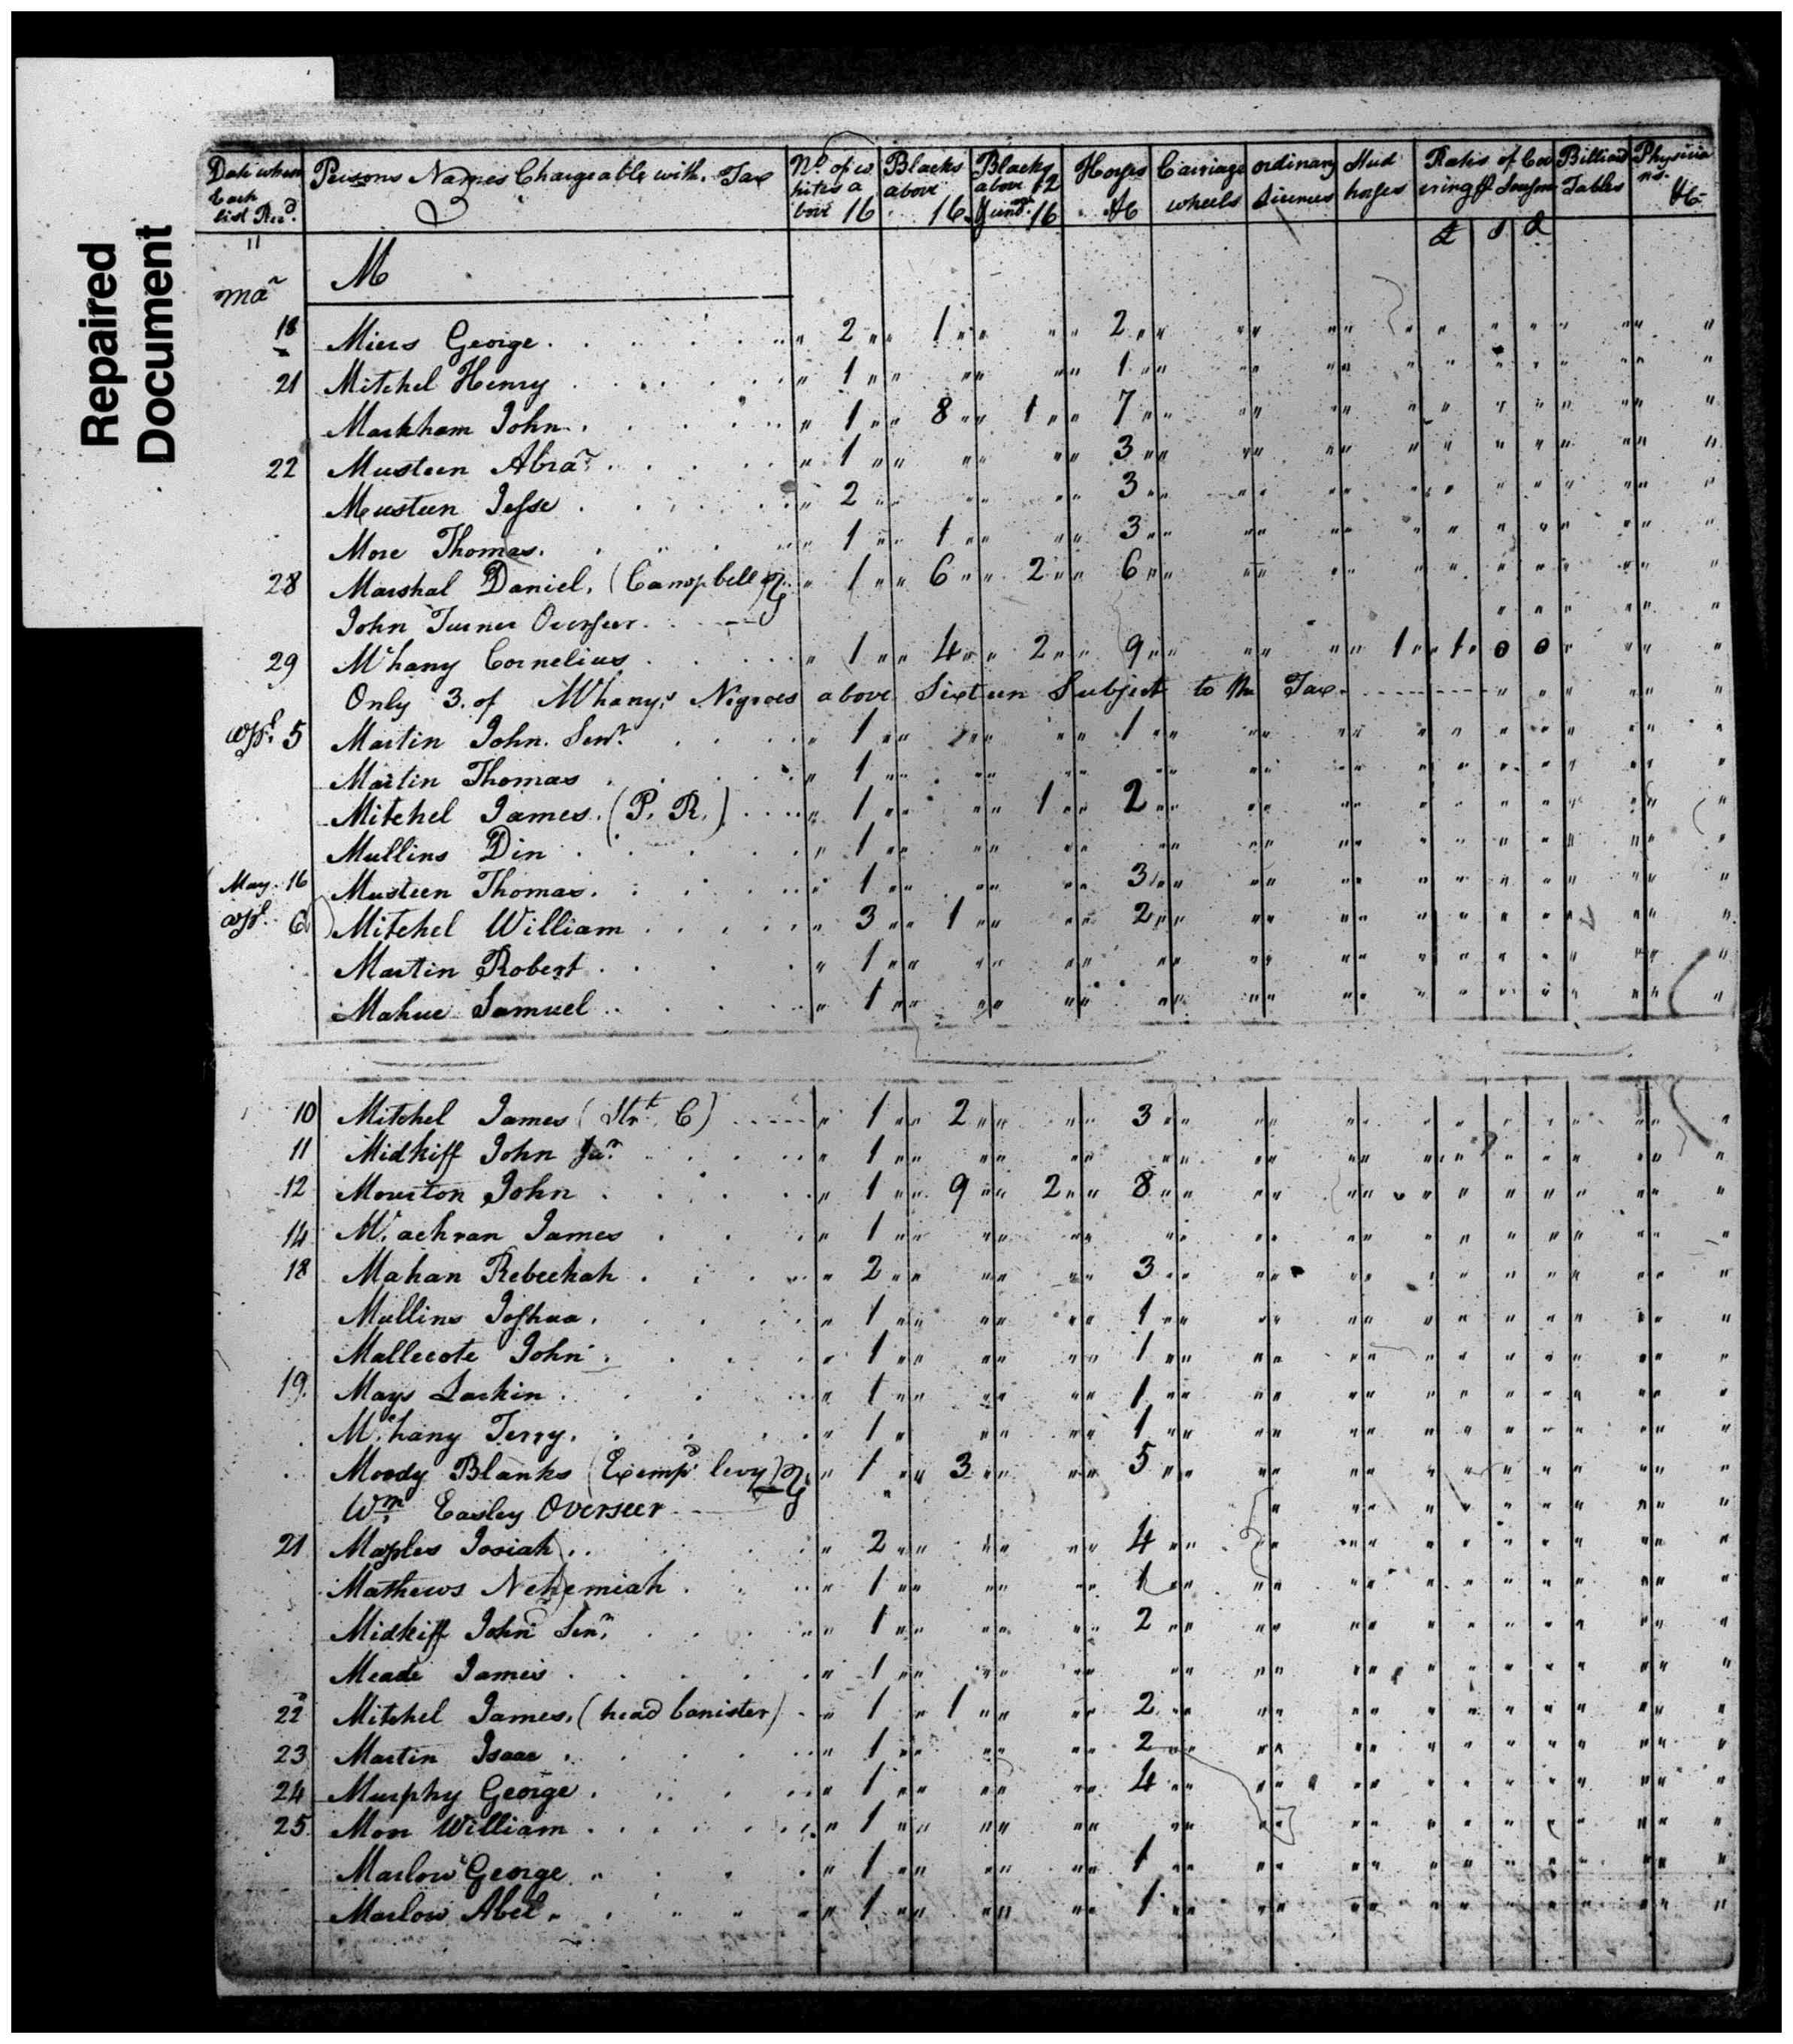 Repaired
Document
Date when Each list Recd. Persons Names Chargeable with Tax No. of whites above 16 Blacks above 16 Blacks above 12 & undr. 16 Horses &c Carriage wheels ordinary Licences Stud horses Rates of Covering ⅌ Season Billiard Tables Physicians &c
" £ S d
Mar M
18 Miers George " 2 " " 1 " " " " 2 " " " " " " " " " " " " " "
21 Mitchel Henry " 1 " " " " " " 1 " " " " " " " " " " " " " "
Markham John " 1 " " 8 " " 1 " " 7 " " " " " " " " " " " " " "
22 Musteen Abrar. " 1 " " " " " " 3 " " " " " " " " " " " " " "
Musteen Jesse " 2 " " " " " " 3 " " " " " " " " " " " " " "
More Thomas " 1 " " 1 " " " " 3 " " " " " " " " " " " " " "
28 Marshal Daniel, (Campbell) " 1 " " 6 " " 2 " " 6 " " " " " " " " " " " " " "
John Turner Overseer " " " " " "
29 Mchany Cornelius " 1 " " 4 " " 2 " " 9 " " " " " " 1 " " 1 " 0 0 " " " "
Only 3. of Mchany's Negroes above Sixteen Subject to the Tax " " " " " "
Apl. 5 Martin John. Senr. " 1 " " " " " " 1 " " " " " " " " " " " " " "
Martin Thomas " 1 " " " " " " " " " " " " " " " " " " " "
Mitchel James. (P. R.) " 1 " " " " 1 " " 2 " " " " " " " " " " " " " "
Mullins Din " 1 " " " " " " " " " " " " " " " " " " " "
May. 16 Musteen Thomas. " 1 " " " " " " 3 " " " " " " " " " " " " " "
Apl. 6 Mitchel William " 3 " " 1 " " " " 2 " " " " " " " " " " " " " "
Martin Robert " 1 " " " " " " " " " " " " " " " " " " " "
Mahue Samuel " 1 " " " " " " " " " " " " " " " " " " " "
10 Mitchel James (Strt. C) " 1 " " 2 " " " " 3 " " " " " " " " " " " " " "
11 Midkiff John Jur. " 1 " " " " " " " " " " " " " " " " " " " "
12 Mourton John " 1 " " 9 " " 2 " " 8 " " " " " " " " " " " " " "
14 Mcachran James " 1 " " " " " " " " " " " " " " " " " " " "
18 Mahan Rebeckah " 2 " " " " " " 3 " " " " " " " " " " " " " "
Mullins Joshua. " 1 " " " " " " 1 " " " " " " " " " " " " " "
Mallecote John " 1 " " " " " " 1 " " " " " " " " " " " " " "
19. Mays Larkin " 1 " " " " " " 1 " " " " " " " " " " " " " "
Mchany Terry. " 1 " " " " " 1 " " " " " " " " " " " " " "
Moody Blanks (Exempd. levy) " 1 " " 3 " " " " 5 " " " " " " " " " " " " " "
Wm. Easley Overseer " " " " " " " " " "
21 Maples Josiah " 2 " " " " " " 4 " " " " " " " " " " " " " "
Mathews Nehemiah " 1 " " " " " " 1 " " " " " " " " " " " " " "
Midkiff John Senr. " 1 " " " " " " 2 " " " " " " " " " " " " " "
Meade James " 1 " " " " " " " " " " " " " " " " " " " "
22 Mitchel James, (head banister) " 1 " 1 " " " " 2 " " " " " " " " " " " " " "
23 Martin Isaac " 1 " " " " " " 2 " " " " " " " " " " " " " "
24 Murphy George " 1 " " " " " " 4 " " " " " " " " " " " " " "
25 Mon William " 1 " " " " " " " " " " " " " " " " " " " "
Marlow George " 1 " " " " " " 1 " " " " " " " " " " " " " "
Marlow Abel " 1 " " " " " " 1 " " " " " " " " " " " " " "